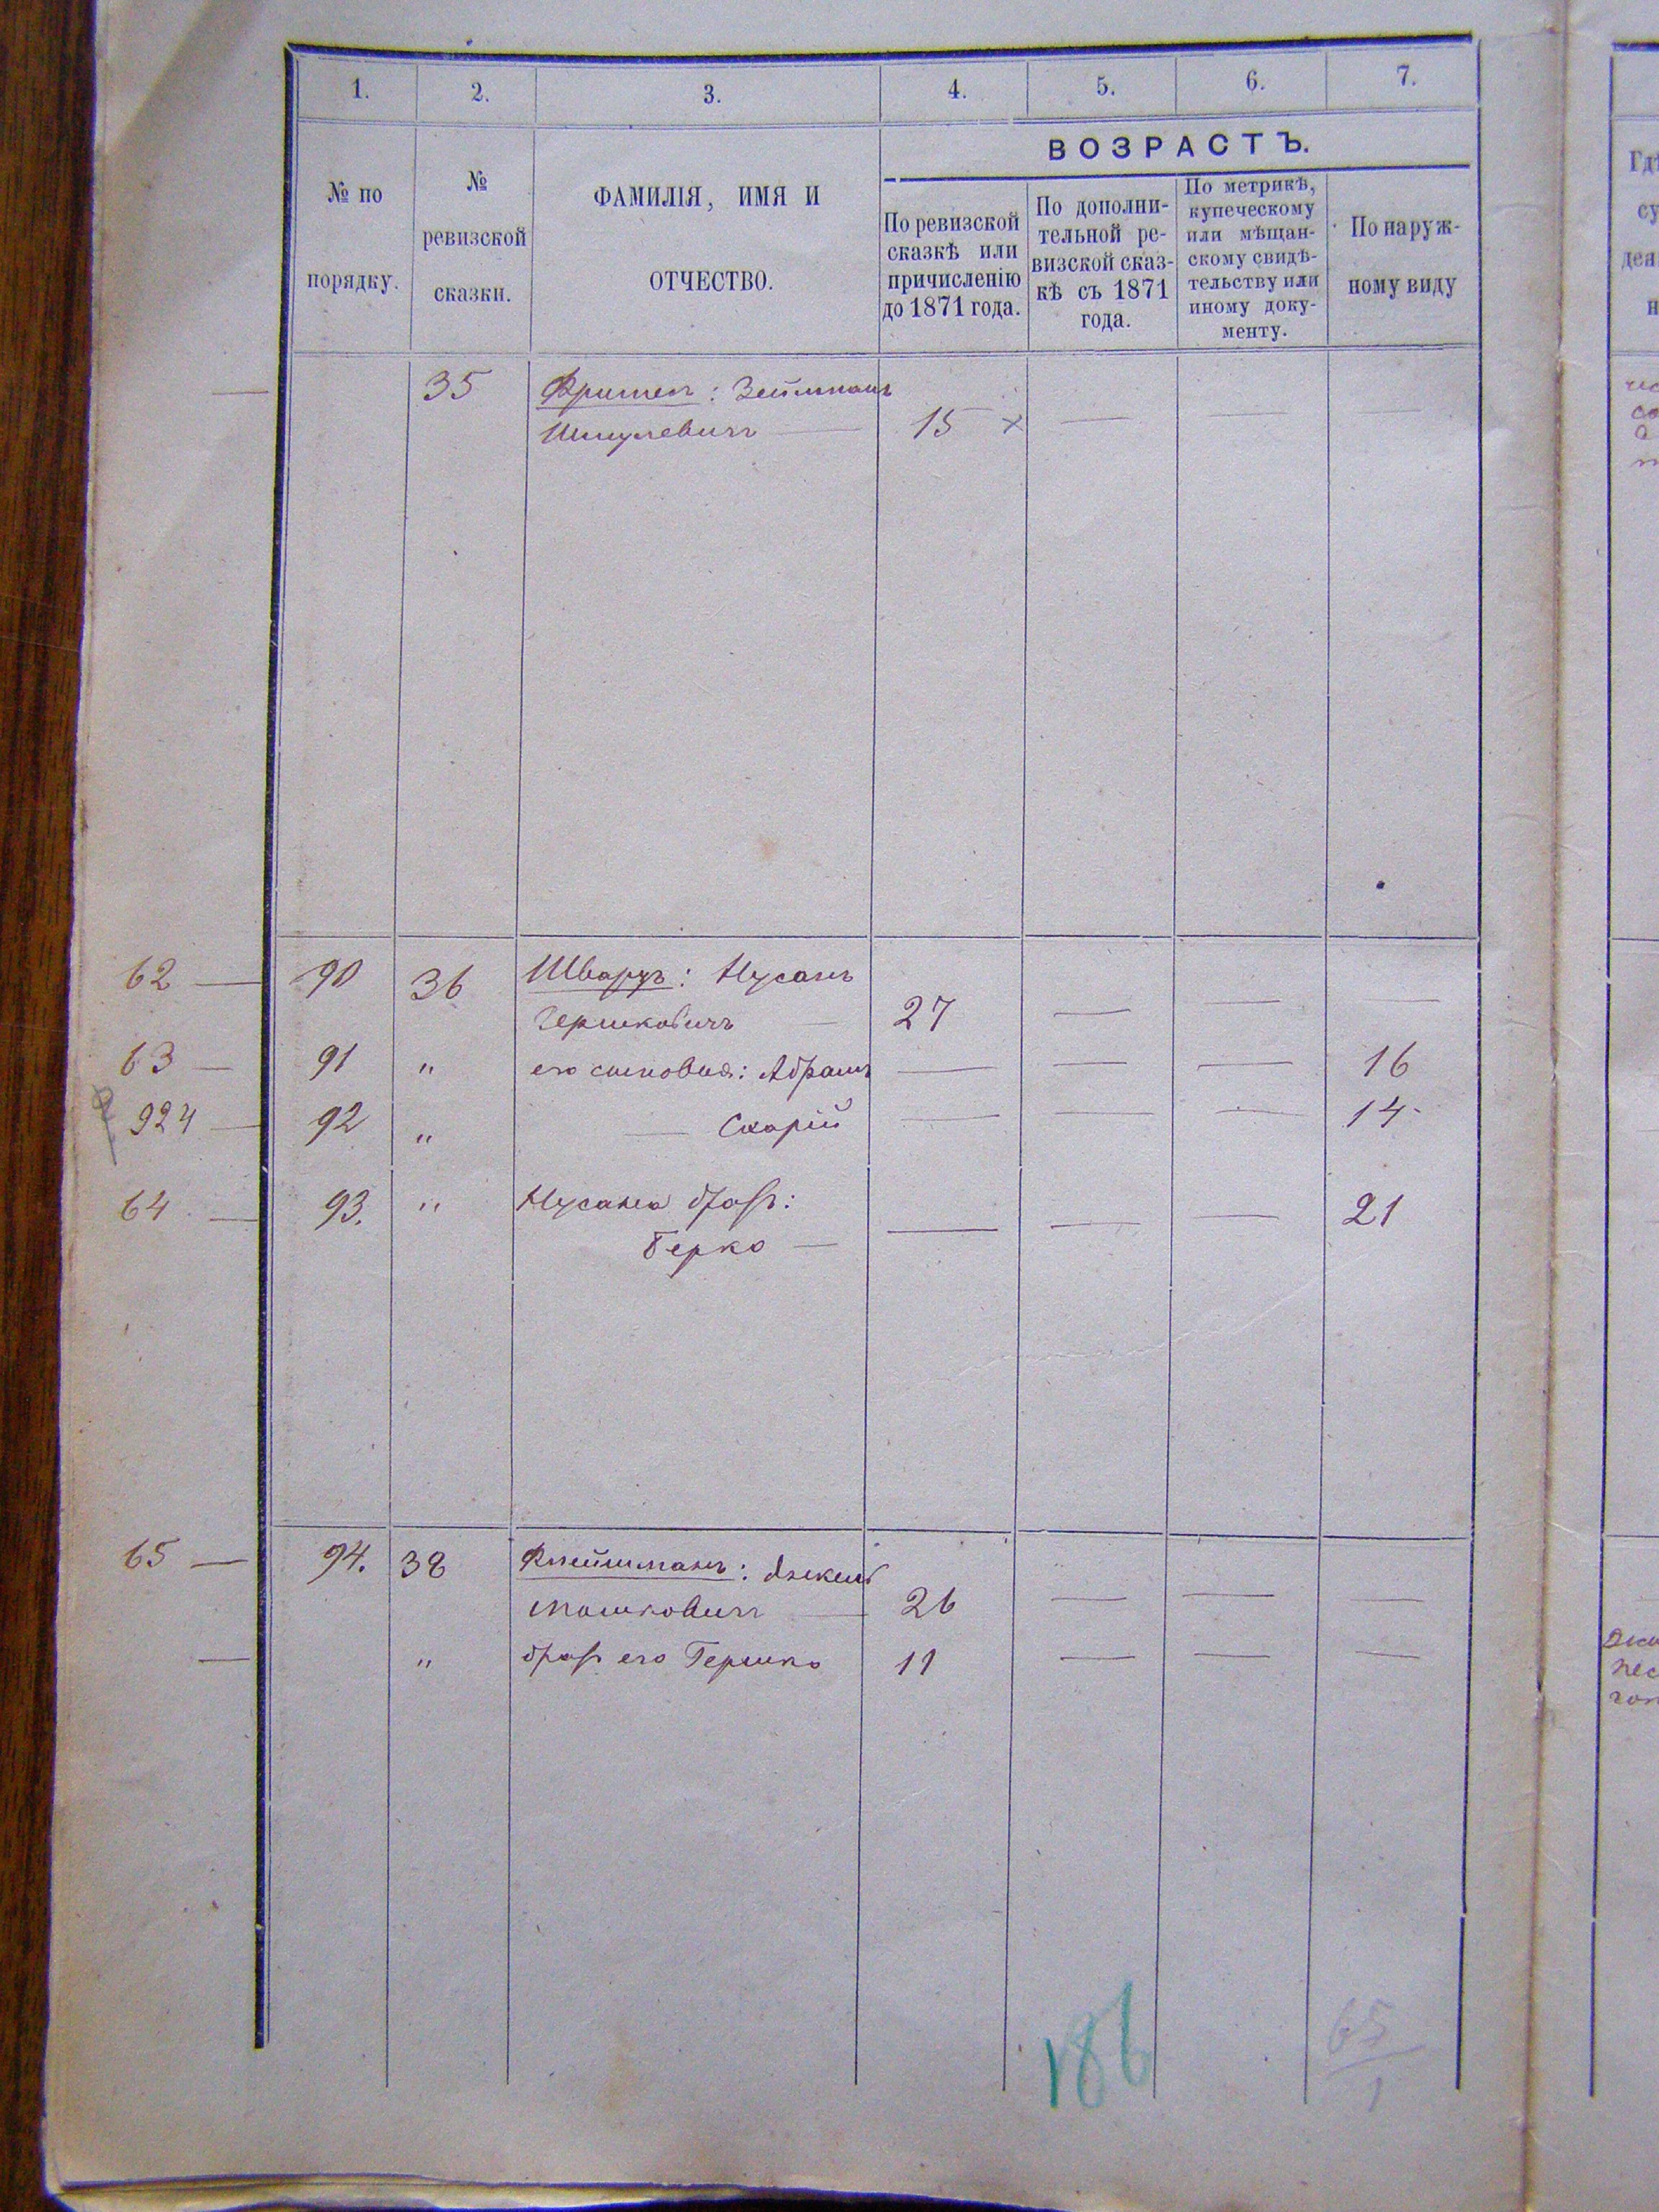 1. 2. 3. 4. 5. 6. 7.
ВОЗРАСТЪ.
№ по
порядку.
№
ревизской
сказки.
ФАМИЛІЯ, ИМЯ И
ОТЧЕСТВО.
По ревизской
сказкѣ или
причисленію
до 1871 года.
По дополни-
тельной ре-
визской сказ-
кѣ съ 1871
года.
По метрикѣ,
купеческому
или мѣщан-
скому свидѣ-
тельству или
иному доку-
менту.
По наруж-
ному виду
— 35 : Зейлманъ
Шмулевичъ — 15 × — — —
62 — 90 36 Шварцъ: Нусанъ
Гершковичъ — 27 — — —
63 — 91 " его сыновья: Абрамъ — — — 16
924 — 92 " — Схарій — — — 14
64 — 93. " Нусана братъ:
Берко — — — — 21
65 — 94. 38 Флейшманъ:
Мошковичъ — 26 — — —
— " братъ его Гершко 11 — — —
186
65
1